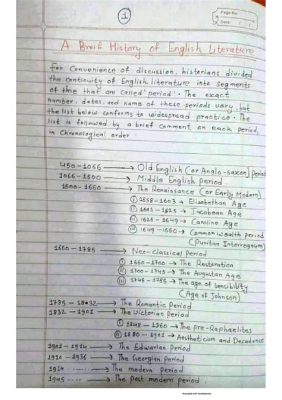 1
Page No.
Date
A Brief History of English Literature
For Convenience of discussion, historians divided
the Continuity of English literature into segments
of time that are called 'period'. The exact
number, dates, and name of these periods vary, but
the list below conforms to widespread practice. The
list is followed by a brief comment on each period,
in Chronological order
450-1066 → Old English (or Anglo-saxon) period
1066-1500 → Middle English period
1500-1660 → The Renaissance (or Early Modern)
i 1558-1603 → Elizabethan Age
ii 1603-1625 → Jacobean Age
iii 1625-1649 → Caroline Age
iv 1649-1660 → Commonwealth period
(Puritan Interregnum)
1660-1785 → Neo-classical period
i 1660-1700 → The Restoration
ii 1700-1745 → The Augustan Age
iii 1745-1785 → The age of sensibility
(Age of Johnson)
1785-1832 → The Romantic Period
1832-1901 → The Victorian Period
i 1848-1860 → The Pre-Raphaelites
ii 1880-1901 → Aestheticism and Decadence
1901-1914 → The Edwardian Period
1910-1936 → The Georgian Period
1914 ..... → The modern period
1945 ..... → The Post modern period